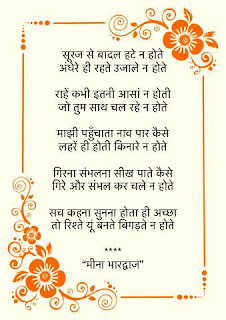 सूरज से बादल हटे न होते
अंधेरे ही रहते उजाले न होते
राहें कभी इतनी आसां न होती
जो तुम साथ चल रहे न होते
माझी पहुँचाता नाव पार कैसे
लहरें ही होती किनारे न होते
गिरना संभलना सीख पाते कैसे
गिरे और संभल कर चले न होते
सच कहना सुनना होता ही अच्छा
तो रिश्ते यूं बनते बिगड़ते न होते
****
"मीना भारद्वाज"